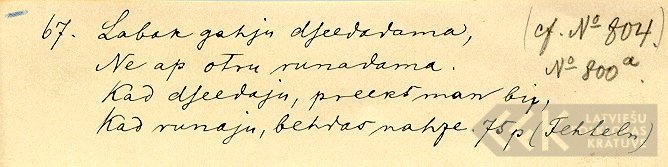 67. Labak gahju dseedadama, (cf. № 804.)
Ne ap otru runadama. № 800ª.
Kad dseedaju, preeks man bij,
Kad runaju, behdas nahze. 75p (Fehteln)
LATVIEŠU
KRĀTUVE